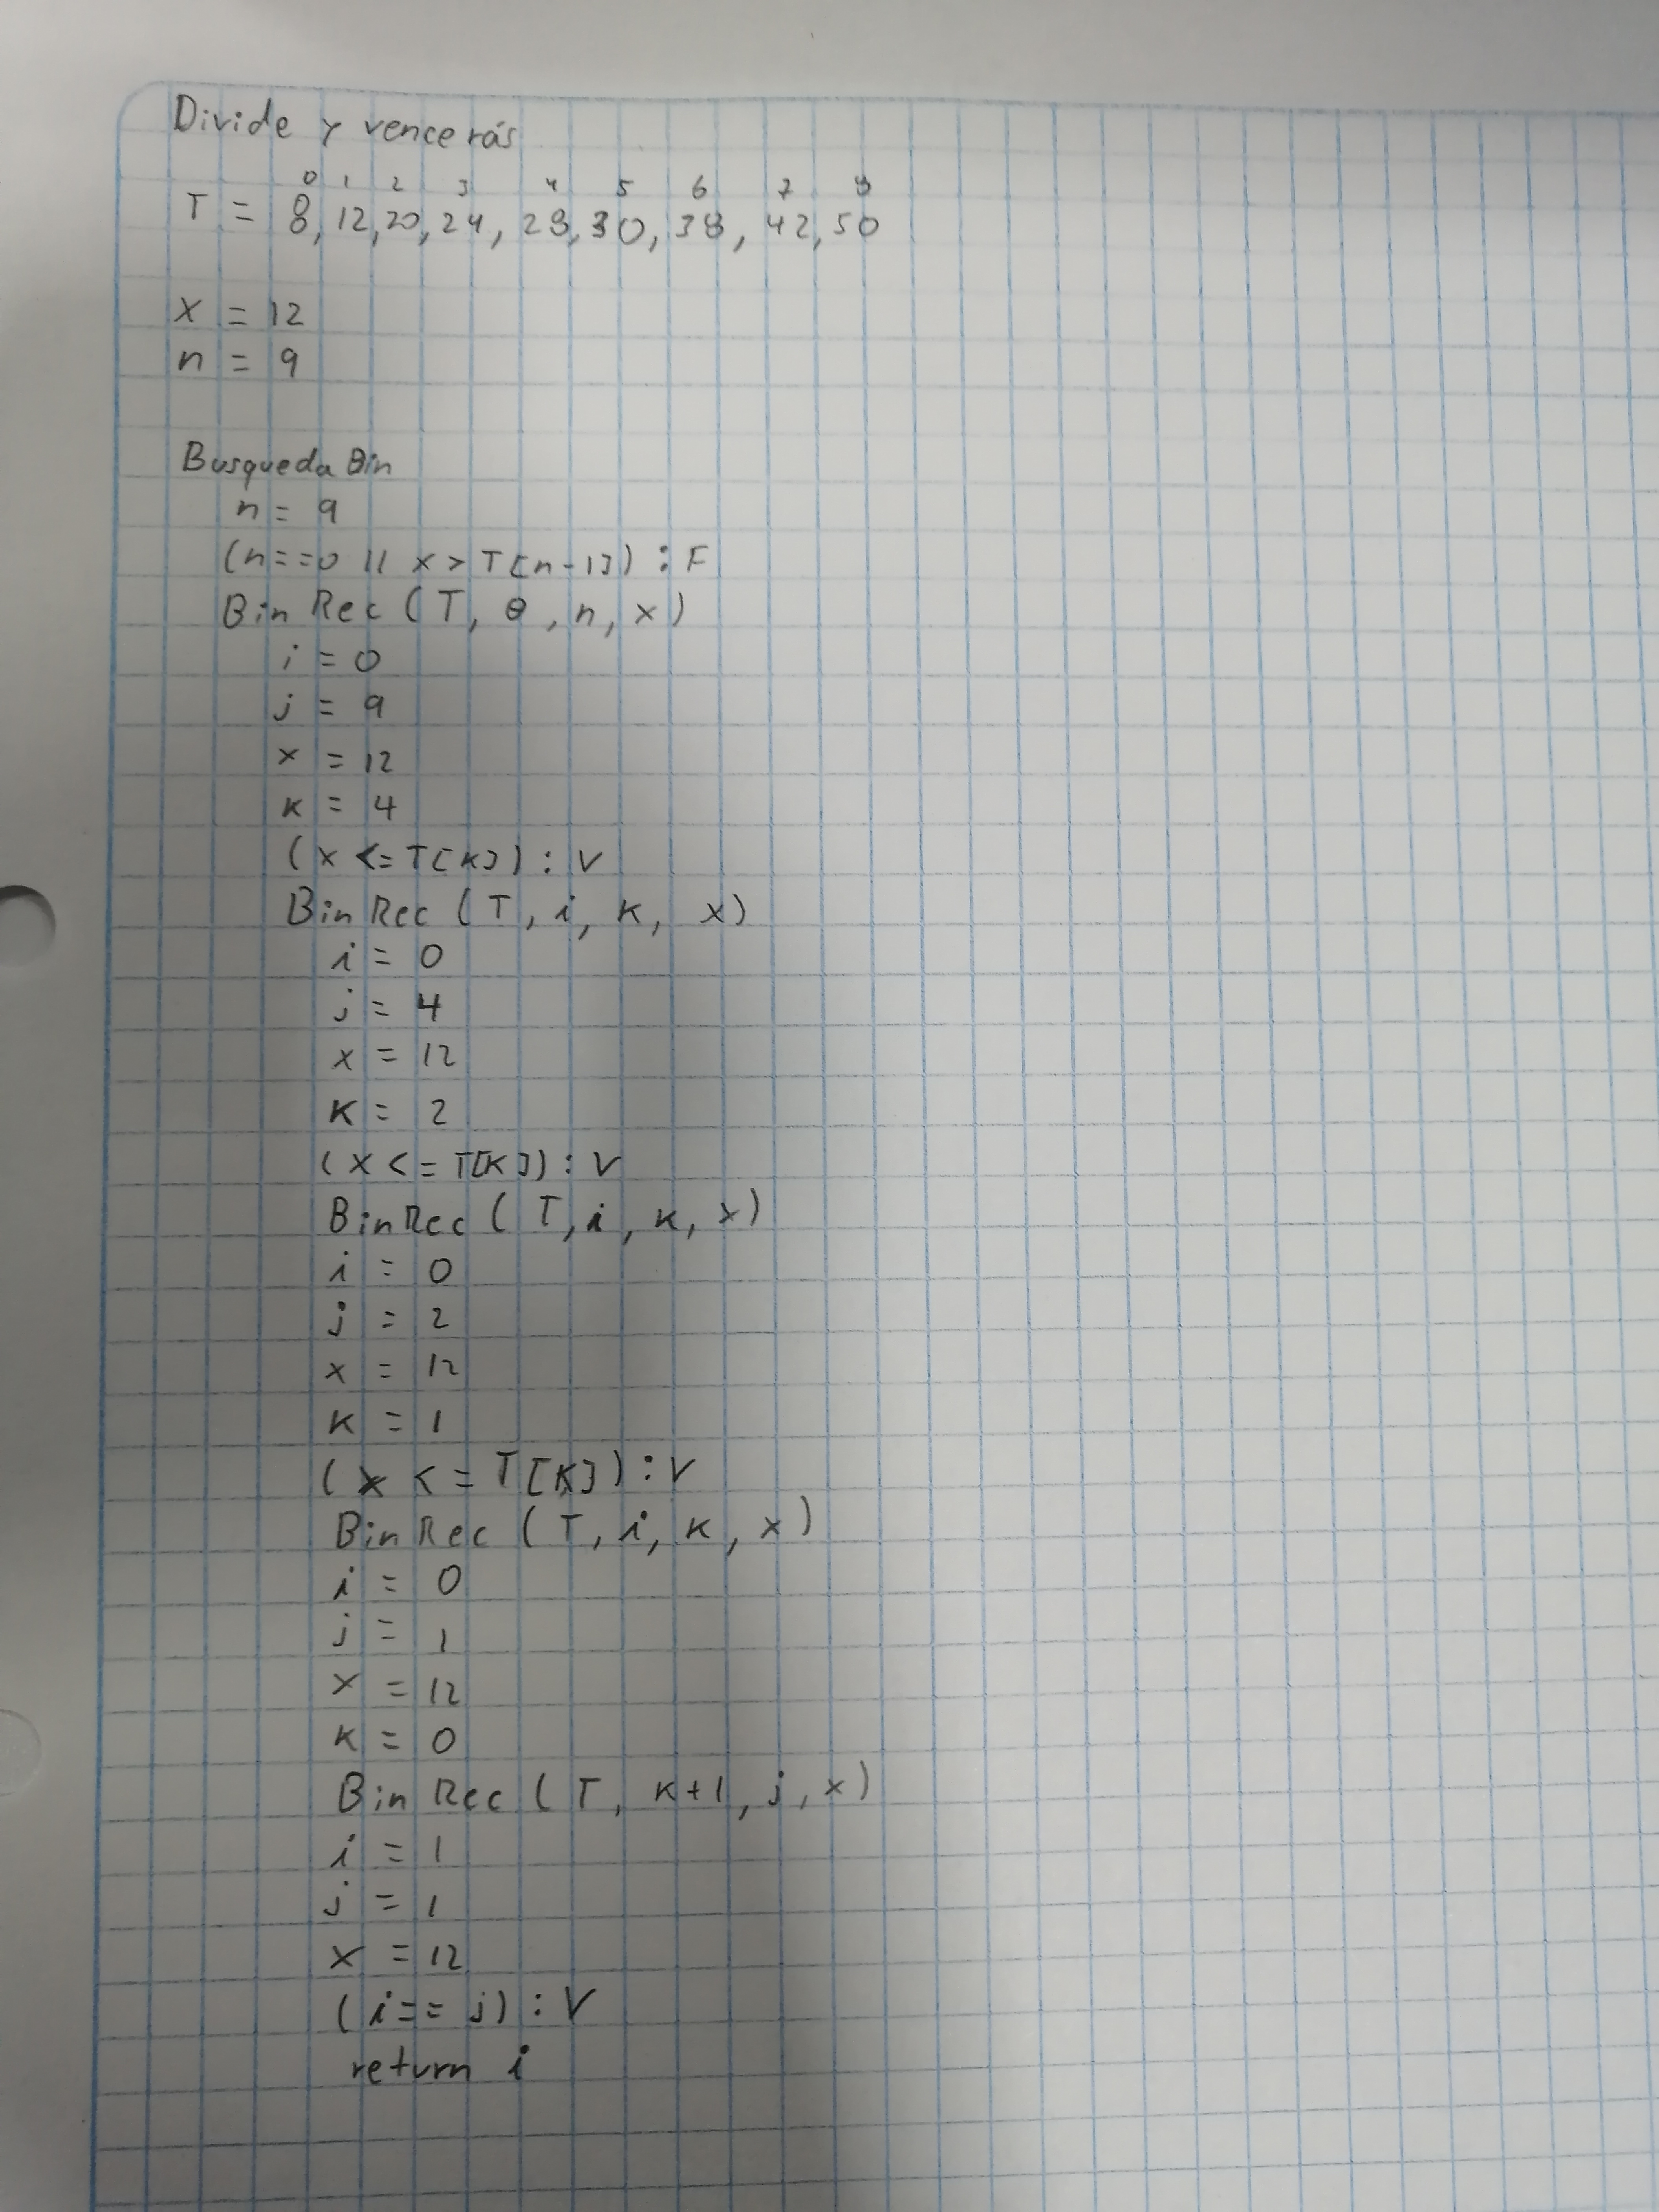 Divide y vencerás
0 1 2 3 4 5 6 7 8
T = 8, 12, 20, 24, 28, 30, 38, 42, 50
x = 12
n = 9
Busqueda Bin
n = 9
(n==0 || x > T[n-1]) : F
Bin Rec (T, 0, n, x)
i = 0
j = 9
x = 12
k = 4
(x <= T[k]) : V
Bin Rec (T, i, k, x)
i = 0
j = 4
x = 12
k = 2
(x <= T[k]) : V
Bin Rec (T, i, k, x)
i = 0
j = 2
x = 12
k = 1
(x <= T[k]) : V
Bin Rec (T, i, k, x)
i = 0
j = 1
x = 12
k = 0
Bin Rec (T, k+1, j, x)
i = 1
j = 1
x = 12
(i == j) : V
return i